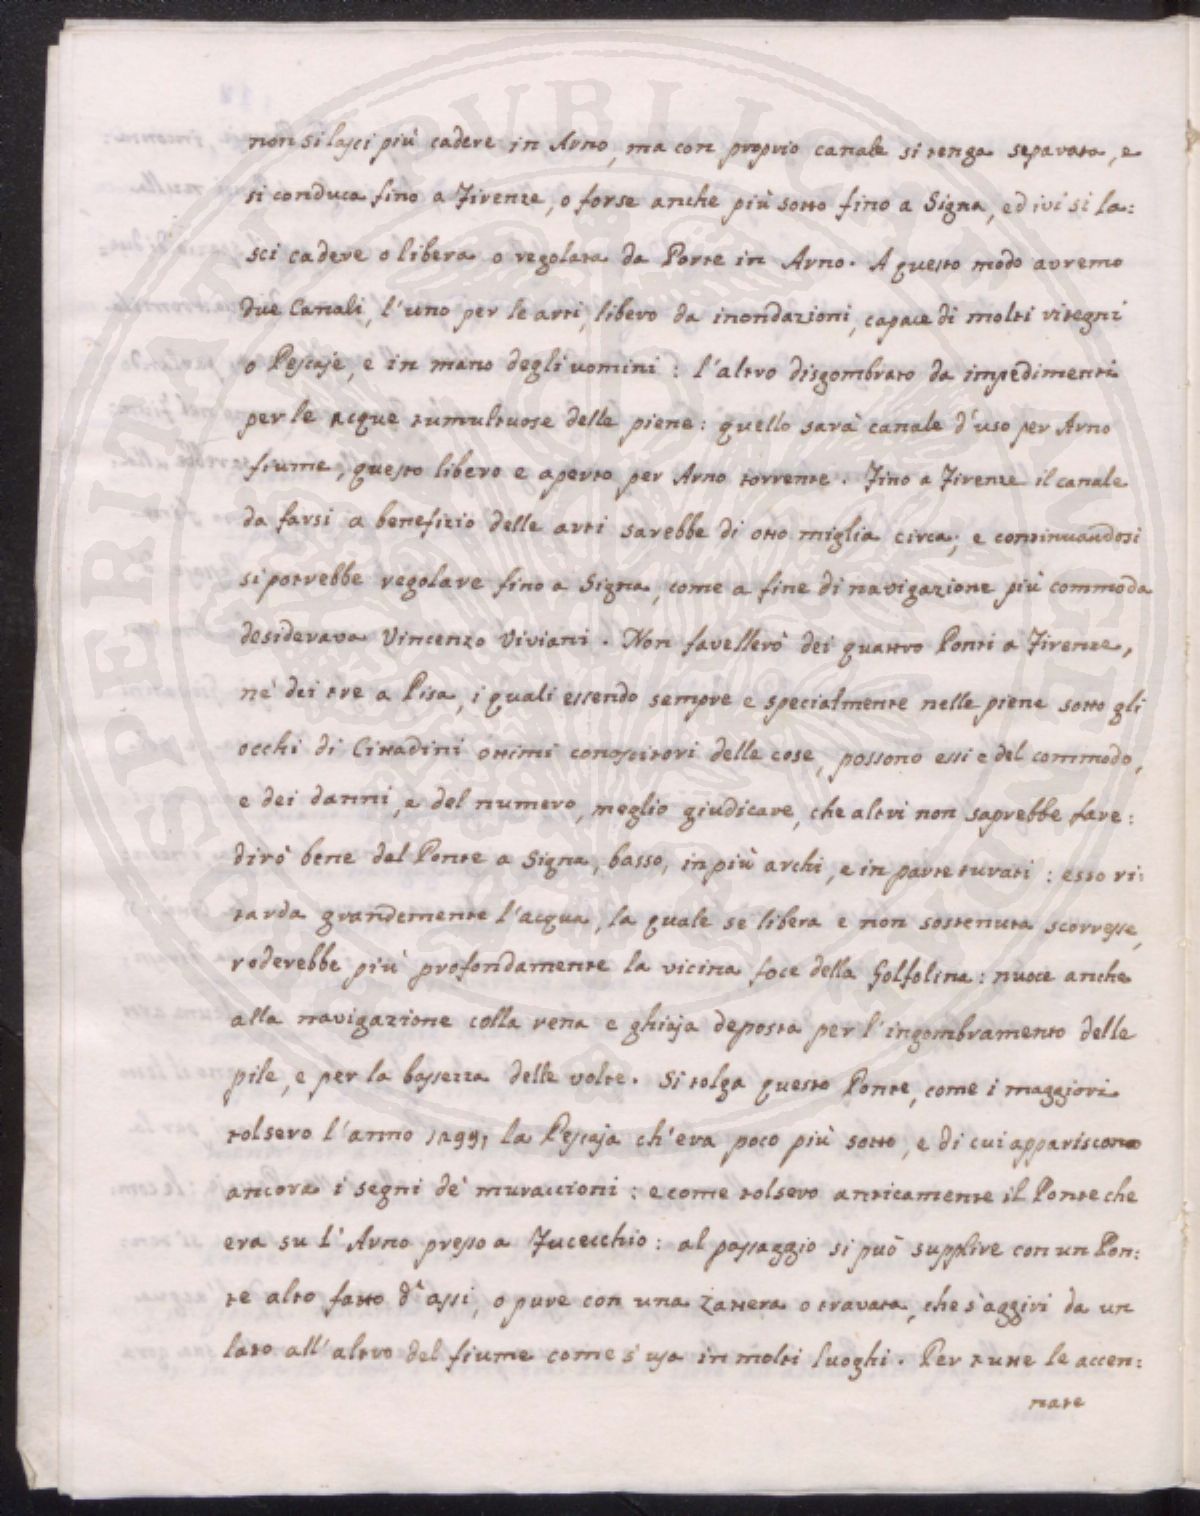 non si lasci più cadere in Arno, ma con proprio canale si tenga separata, e
si conduca fino a Firenze, o forse anche più sotto fino a Signa, ed ivi si la:
sci cadere o libera o regolata da Porte in Arno. A questo modo avremo
due Canali, l'uno per le arti, libero da inondazioni, capace di molti ritegni
o Pescaje, e in mano degli uomini : l'altro disgombrato da impedimenti
per le acque tumultuose delle piene : quello sarà canale d'uso per Arno
fiume, questo libero e aperto per Arno torrente. Fino a Firenze il canale
da farsi a benefizio delle arti sarebbe di otto miglia circa; e continuandosi
si potrebbe regolare fino a Signa, come a fine di navigazione più commoda
desiderava Vincenzo Viviani. Non favellerò dei quattro Ponti a Firenze,
nè dei tre a Pisa, i quali essendo sempre e specialmente nelle piene sotto gli
occhi di Cittadini ottimi conoscitori delle cose, possono essi e del commodo,
e dei danni, e del numero, meglio giudicare, che altri non saprebbe fare :
dirò bene del Ponte a Signa, basso, in più archi, e in parte turati : esso ri:
tarda grandemente l'acqua, la quale se libera e non sostenuta scorresse,
roderebbe più profondamente la vicina foce della Golfolina : nuoce anche
alla navigazione colla rena e ghiaja deposta per l'ingombramento delle
pile, e per la bassezza delle volte. Si tolga questo Ponte, come i maggiori
tolsero l'anno la Pescaja ch'era poco più sotto, e di cui appariscono
ancora i segni de' muraccioni : e come tolsero anticamente il Ponte che
era su l'Arno presso a Fucecchio : al passaggio si può supplire con un Pon:
te alto fatto d'assi, o pure con una Zattera o travata, che s'aggiri da un
lato all'altro del fiume come s'usa in molti luoghi. Per tutte le accen:
nate
SPERITAT PUBLICAE